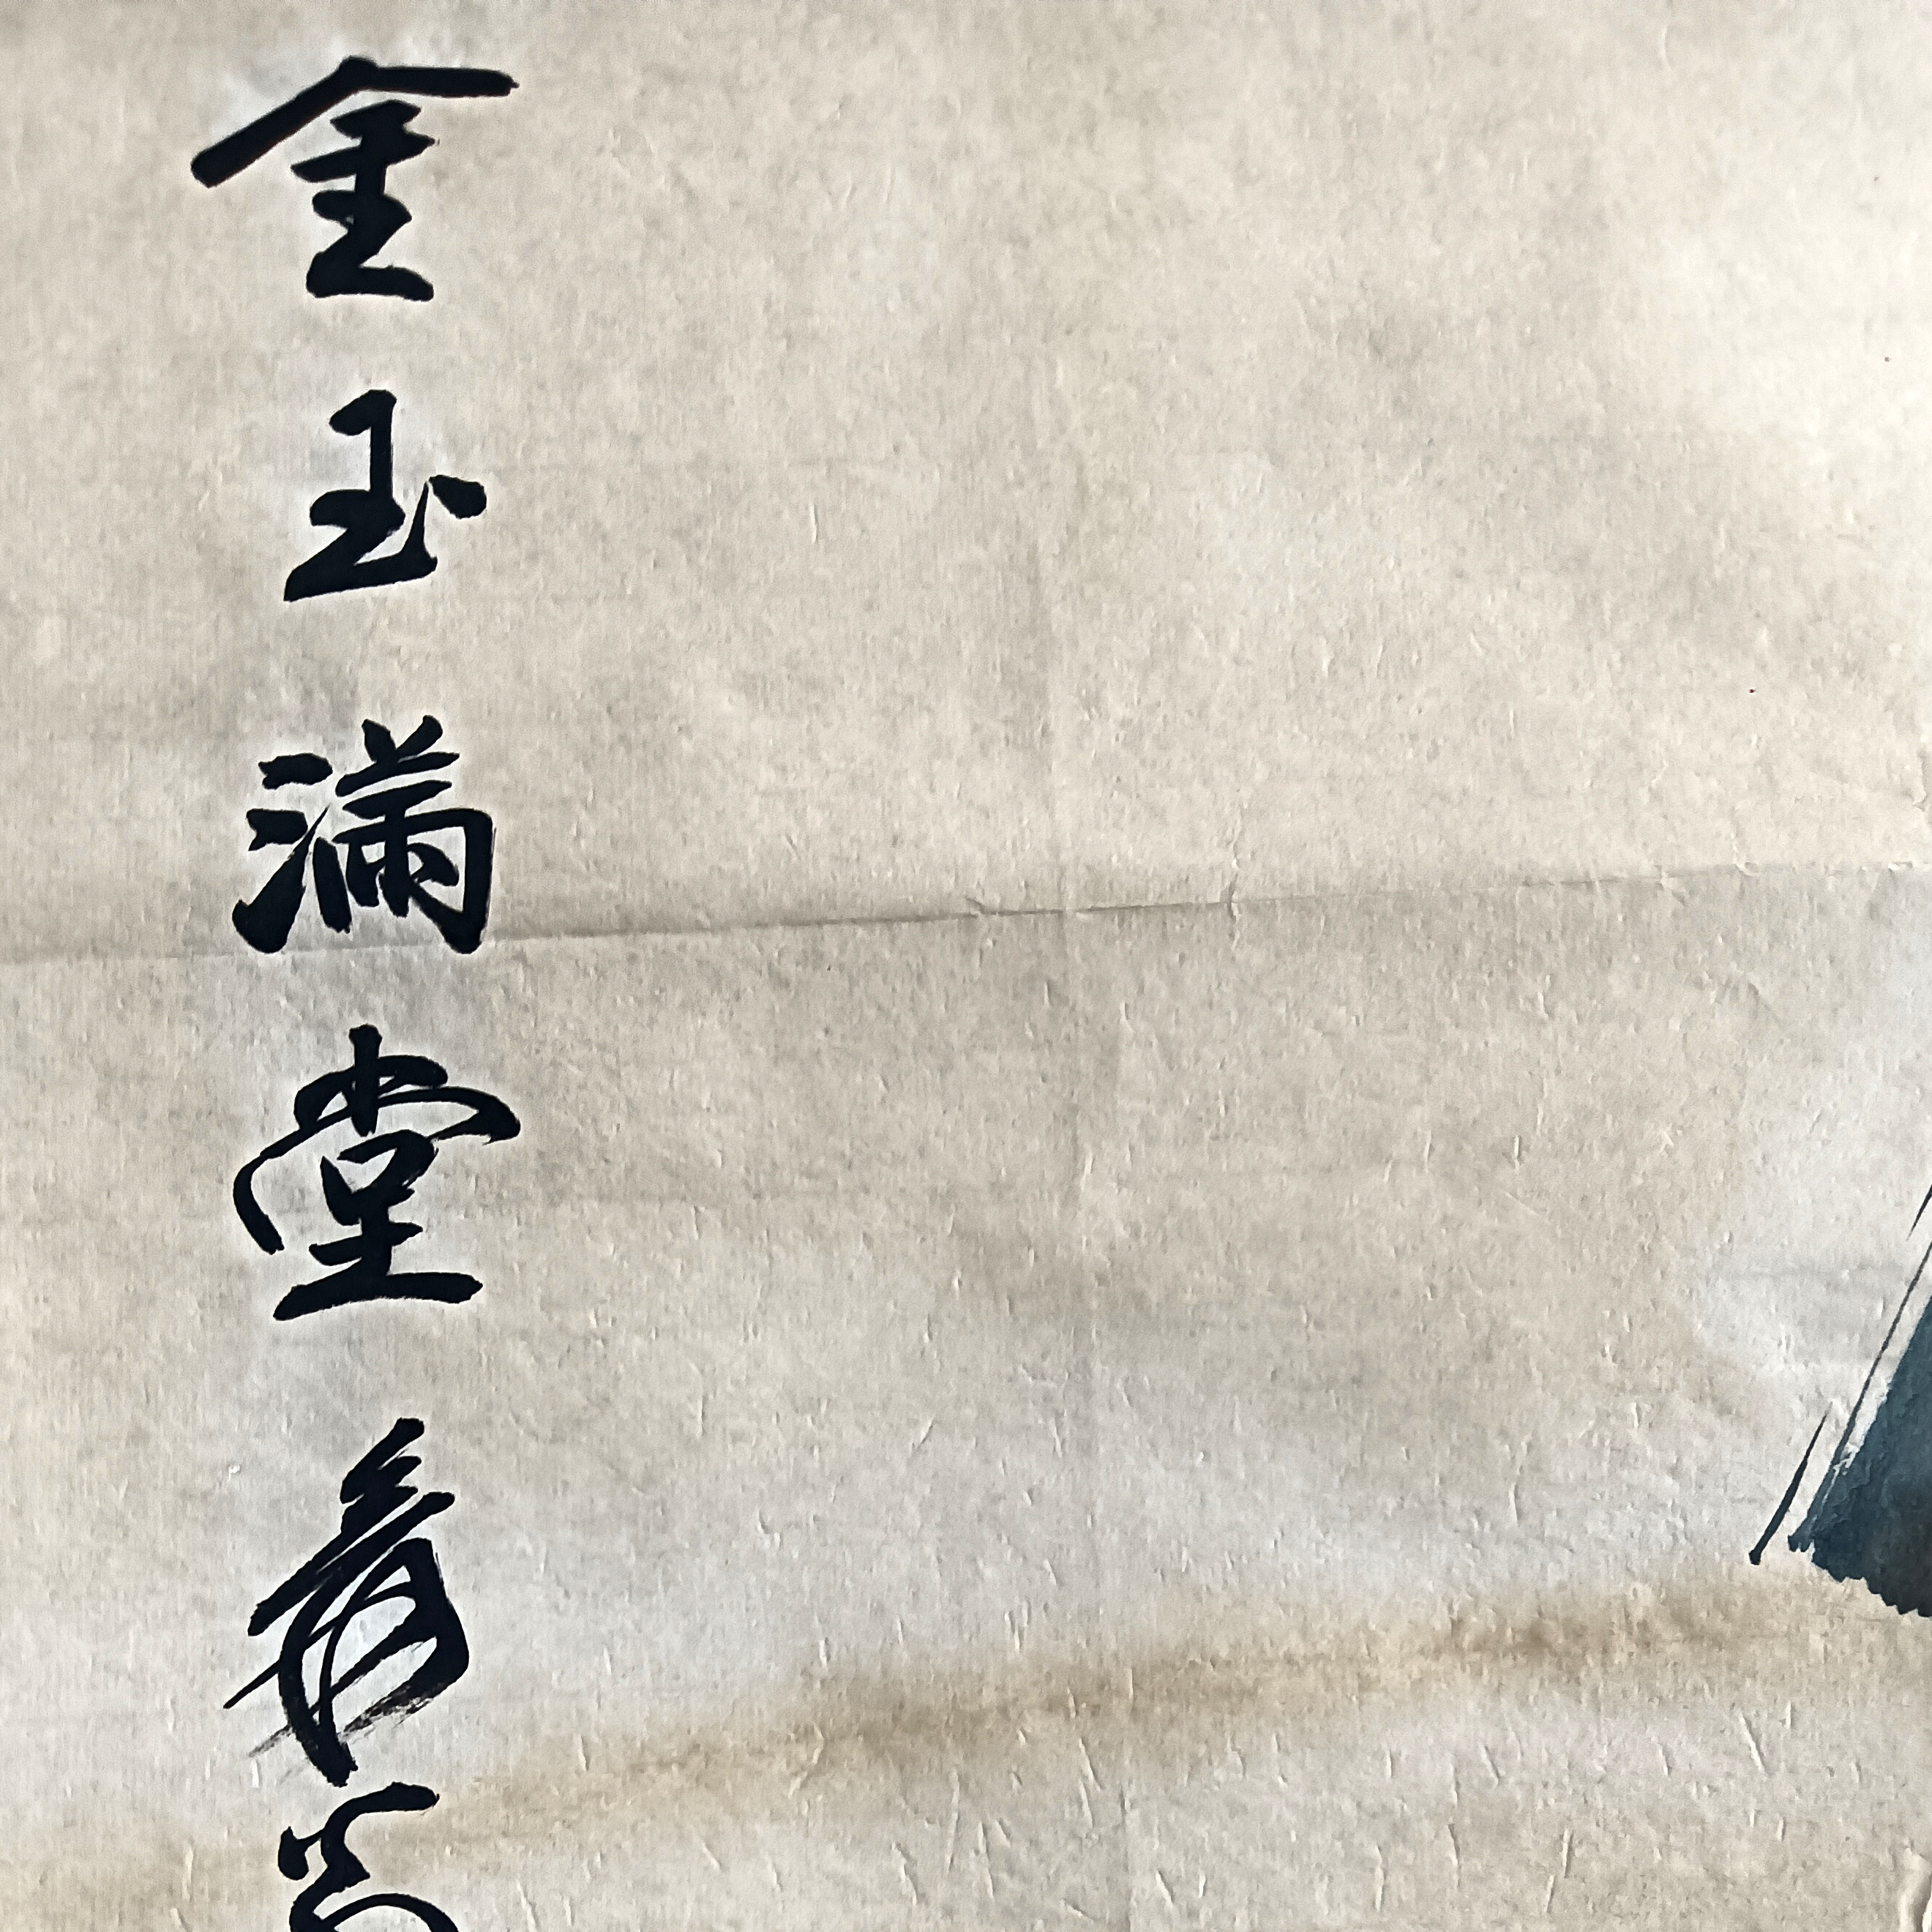 金玉滿堂爰